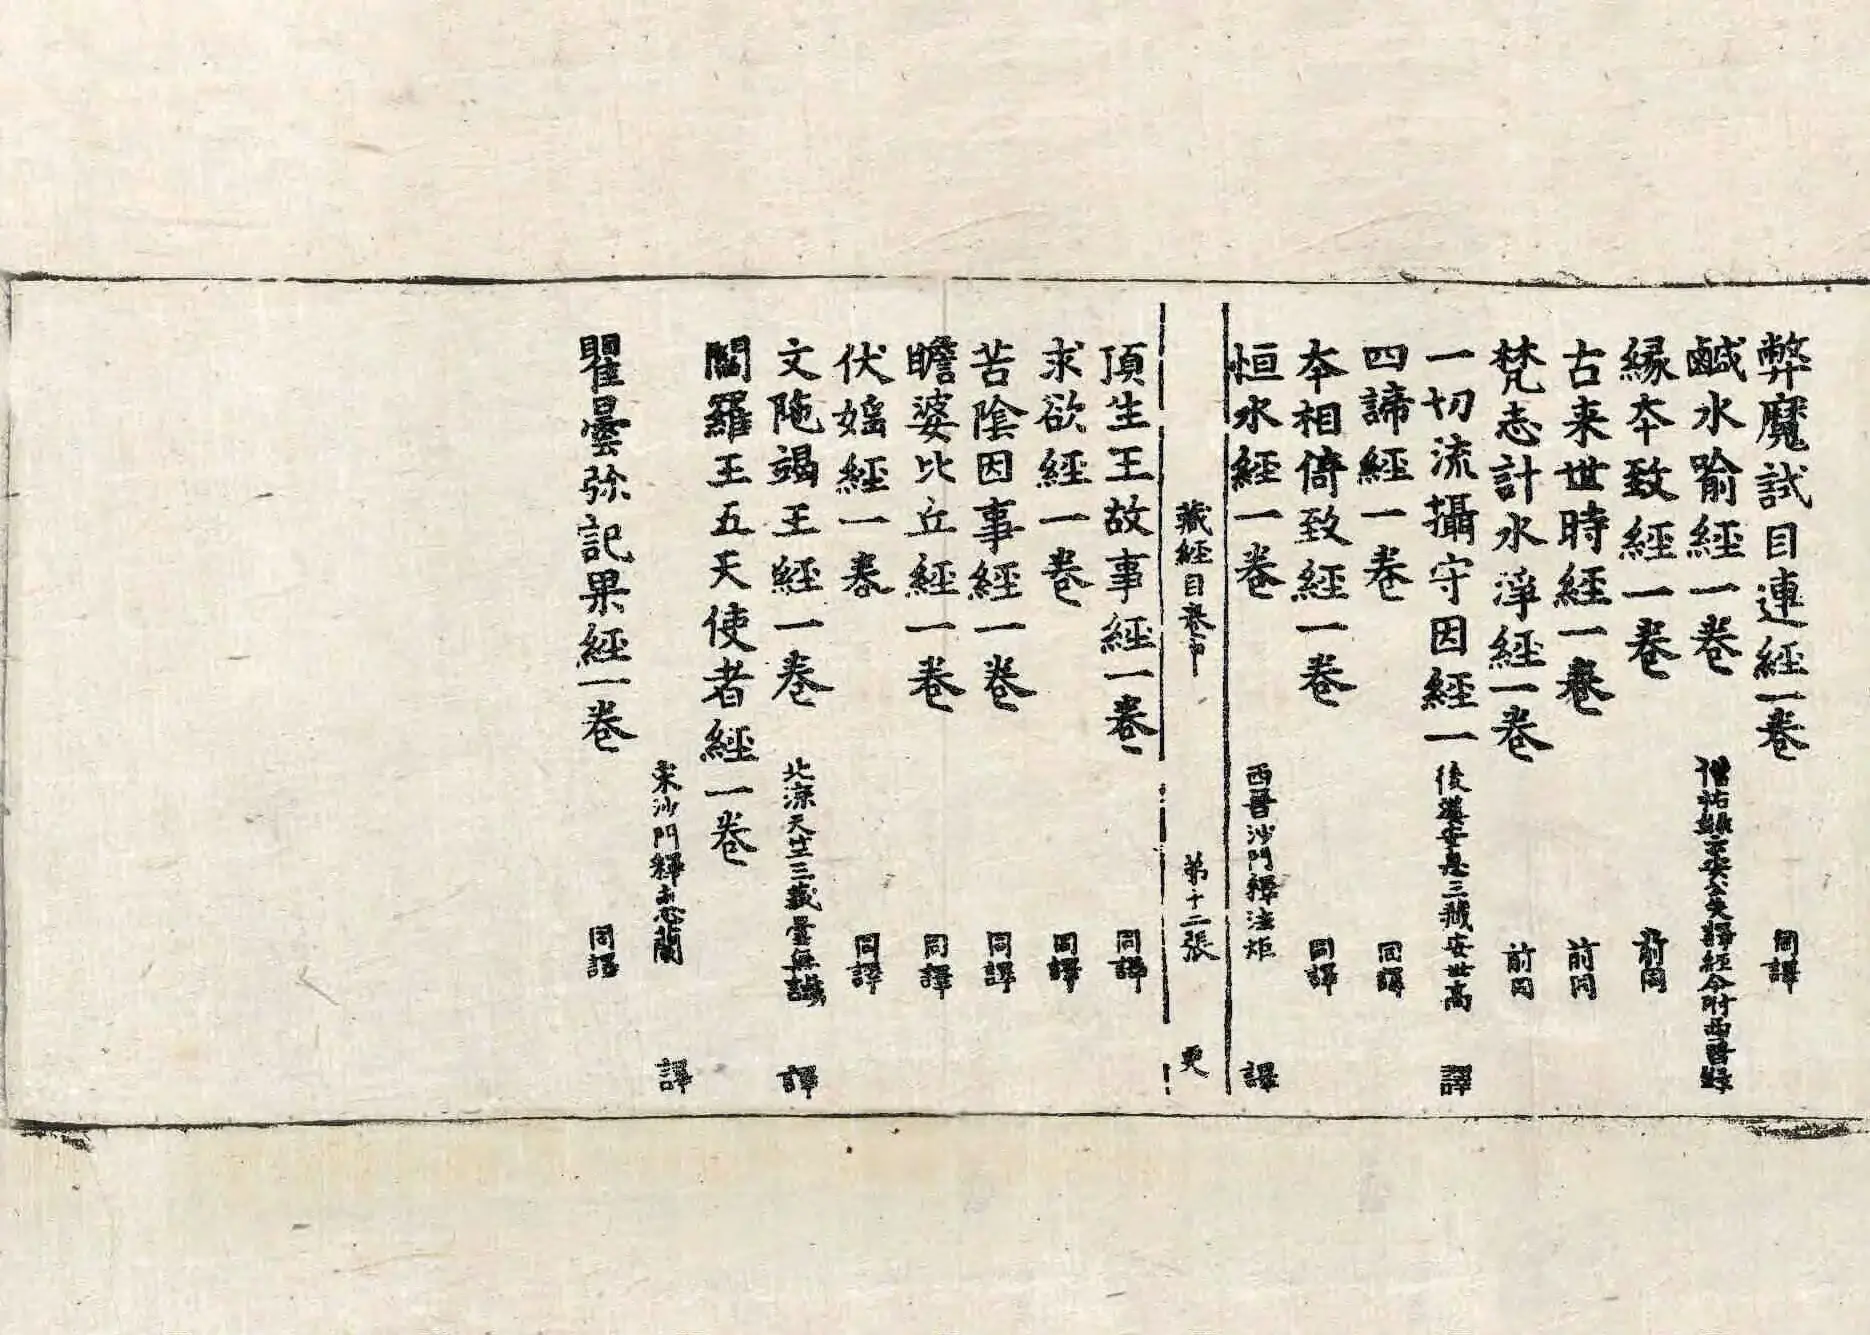 弊魔試目連經一卷 同譯
鹹水喻經一卷 僧祐録云安公失譯經今附西晉録
縁本致經一卷 前同
古来世時經一卷 前同
梵志計水淨經一卷 前同
一切流攝守因經一 後漢安息三藏安世高 譯
四諦經一卷 同譯
本相倚致經一卷 同譯
恒水經一卷 西晉沙門釋法炬 譯
藏經目卷中 第十二張 更
頂生王故事經一卷 同譯
求欲經一卷 同譯
苦陰因事經一卷 同譯
瞻婆比丘經一卷 同譯
伏婬經一卷 同譯
文陁竭王經一卷 北涼天竺三藏曇無讖 譯
閻羅王五天使者經一卷
宋沙門釋惠蘭 譯
瞿曇弥記果經一卷 同譯